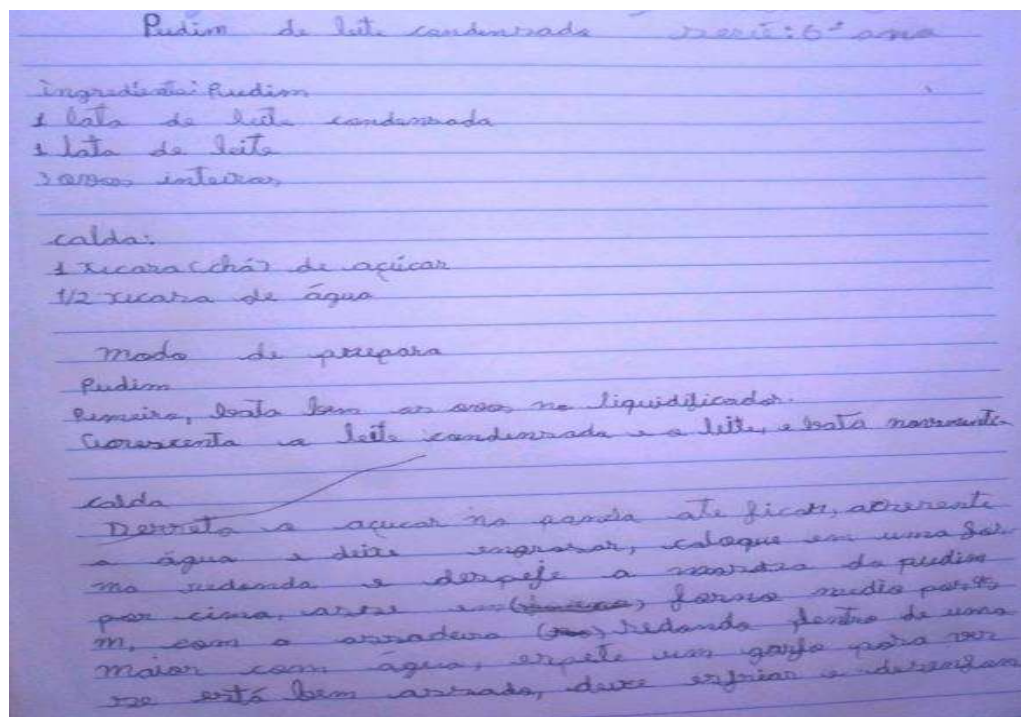 Pudim de leite condensado serie: 6º ano
ingredientes: Pudim
1 lata de leite condensado
1 lata de leite
3 ovos inteiros
calda:
1 xicara (chá) de açúcar
1/2 xicara de água
modo de prepara
Pudim
Primeiro, bata bem os ovos no liquidificador.
Acrescenta o leite condensado e o leite, e bata novamente
calda
Derreta o açucar na panela ate ficar, acrerente
a água e deixe engrosar, caloque em uma for
ma redonda e despeje a massa do pudim
por cima, asse em forno medio por 45
m, com a assadeira redonda dentro de uma
maior com água, espete um garfo para ver
se está bem assado, deixe esfriar e desenforn